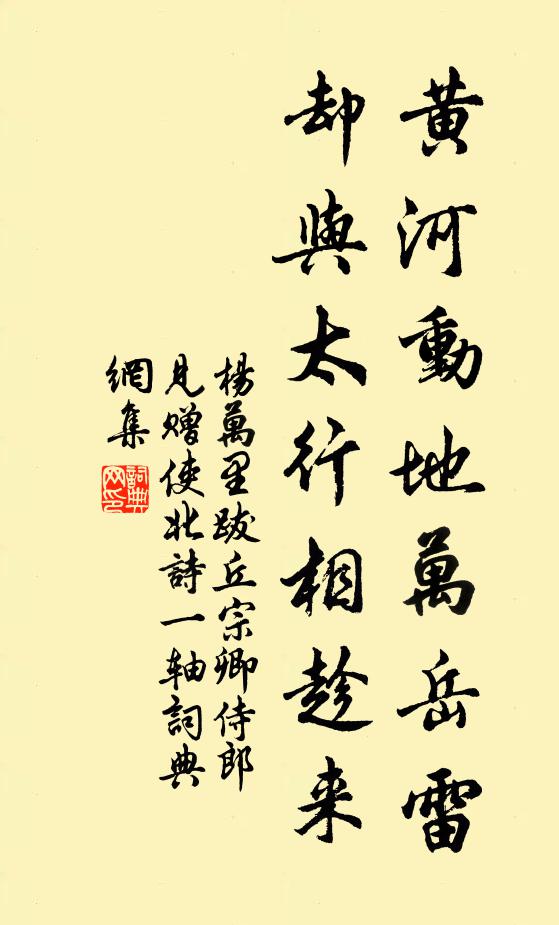 黄河動地萬岳雷
却與太行相趁来
楊萬里跋丘宗卿侍郎
見贈使北詩一轴詞典
網集
詞典
网印